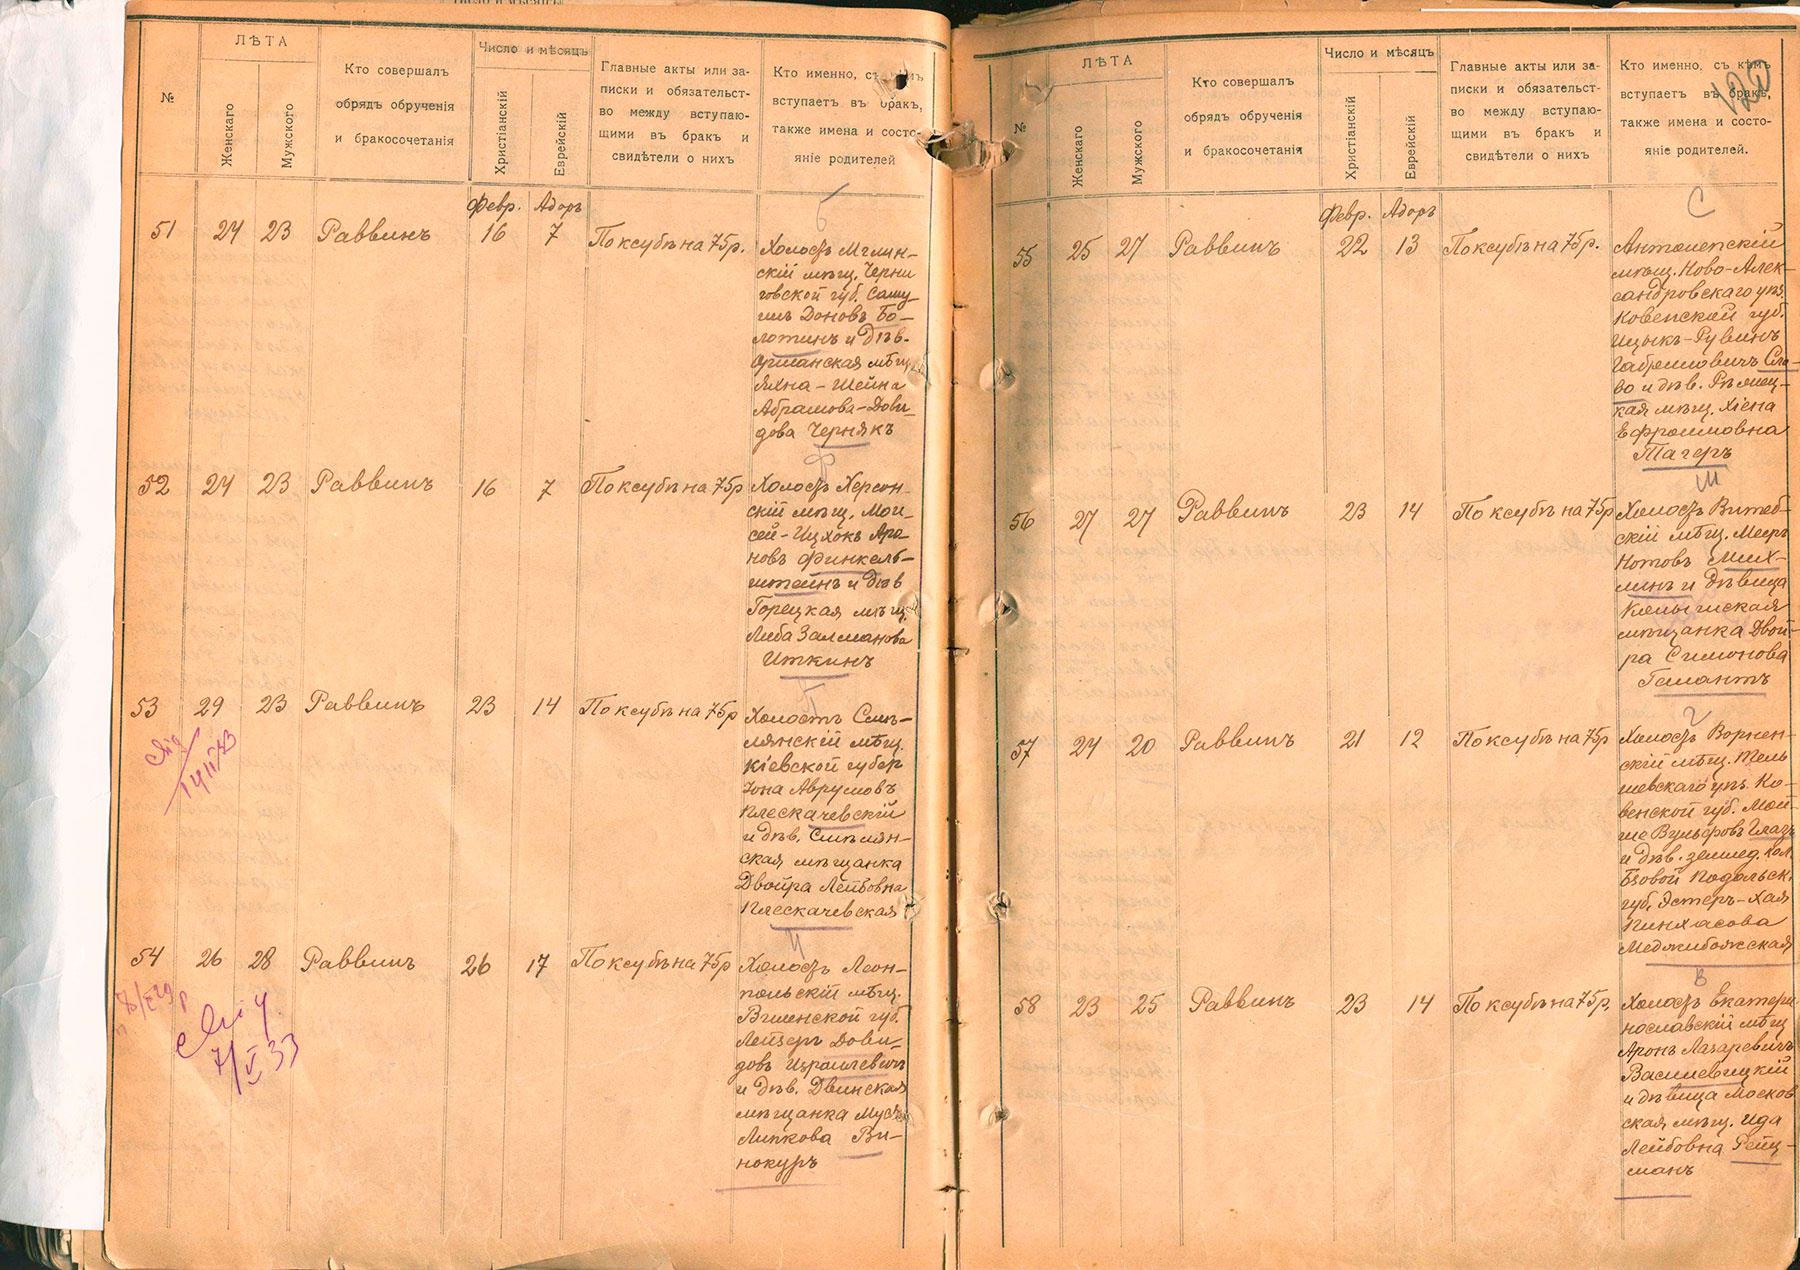 ЛѢТА
№
Женскаго
Мужского
Кто совершалъ
обрядъ обручения
и бракосочетанія
Число и мѣсяцъ
Христіанскій
Еврейскій
Главные акты или за-
писки и обязательст-
во между вступаю-
щими въ бракъ и
свидѣтели о нихъ
Кто именно, съ кѣмъ
вступаетъ въ бракъ,
также имена и состо-
яніе родителей
Февр. Адоръ
51 24 23 Раввинъ 16 7 По ксубѣ на 75р.
Б
Холостъ Мглин-
скій мѣщ. Черни
говской губ. Саму
илъ Доновъ Бо-
лотинъ и дѣв.
Оршанская мѣщ.
Яхна-Шейна
Абрамова-Дови-
дова Чернякъ
52 24 23 Раввинъ 16 7 По ксубѣ на 75р
Ф
Холостъ Херсон-
скій мѣщ. Мои-
сей-Ицхокъ Аро-
новъ Финкель-
штейнъ и дѣв
Горецкая мѣщ.
Либа Залманова
Иткинъ
53 29 23 Раввинъ 23 14 По ксубѣ на 75р
П
Холостъ Смѣ-
лянскій мѣщ.
Кіевской губер
Іона Аврумовъ
Плескачевскій
и дѣв. Смѣлян-
ская мѣщанка
Двойра Лейбовна
Плескачевская
54 26 28 Раввинъ 26 17 По ксубѣ на 75р
И
Холостъ Леон-
польскій мѣщ.
Виленской губ.
Лейзеръ Дови-
довъ Израилевичъ
и дѣв. Двинская
мѣщанка Муся
Липкова Ви-
нокуръ
7/V 33
ЛѢТА
№
Женскаго
Мужского
Кто совершалъ
обрядъ обручения
и бракосочетанія
Число и мѣсяцъ
Христіанскій
Еврейскій
Главные акты или за-
писки и обязательст-
во между вступаю-
щими въ бракъ и
свидѣтели о нихъ
Кто именно, съ кѣмъ
вступаетъ въ бракъ,
также имена и состо-
яніе родителей.
Февр. Адоръ
55 25 27 Раввинъ 22 13 По ксубѣ на 75р.
С
Антолепскій
мѣщ. Ново-Алек-
сандровскаго уѣз.
Ковенской губ.
Ицыкъ-Рувинъ
Габріиловичъ Сло-
во и дѣв. Рѣжиц-
кая мѣщ. Хіена
Ефроимовна
Тагеръ
56 27 27 Раввинъ 23 14 По ксубѣ на 75р
Ш
Холостъ Витеб-
скій мѣщ. Мееръ
Нотовъ
и дѣвица
мѣщанка Двой-
ра Симонова
Галантъ
57 24 20 Раввинъ 21 12 По ксубѣ на 75р
Холостъ Ворнен-
скій мѣщ. Тель
шевскаго уѣз. Ко-
венской губ. Мой-
ше Вульфовъ Глазъ
и дѣв. землед. кол.
Подольск.
губ. Эстеръ-Хая
Пинхасова
Меджибожская
58 23 25 Раввинъ 23 14 По ксубѣ на 75р.
В
Холостъ Екатери
нославскій мѣщ
Аронъ Лазаревичъ
Василевицкій
и дѣвица Москов
ская мѣщ. Ида
Лейбовна Рейц-
манъ